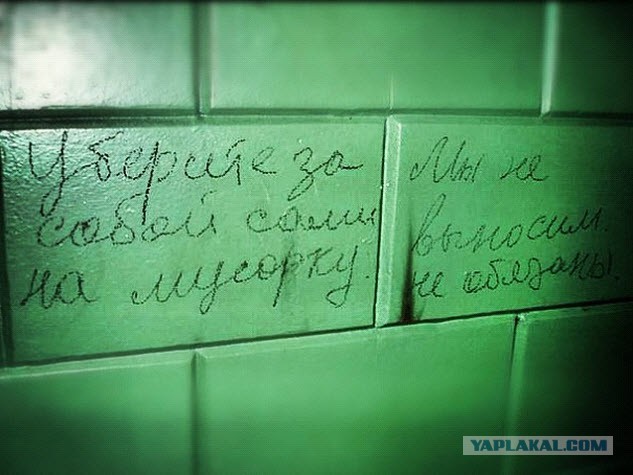 Уберите за
собой сами
на мусорку.
Мы не
выносим.
не обязаны.
YAPLAKAL.COM